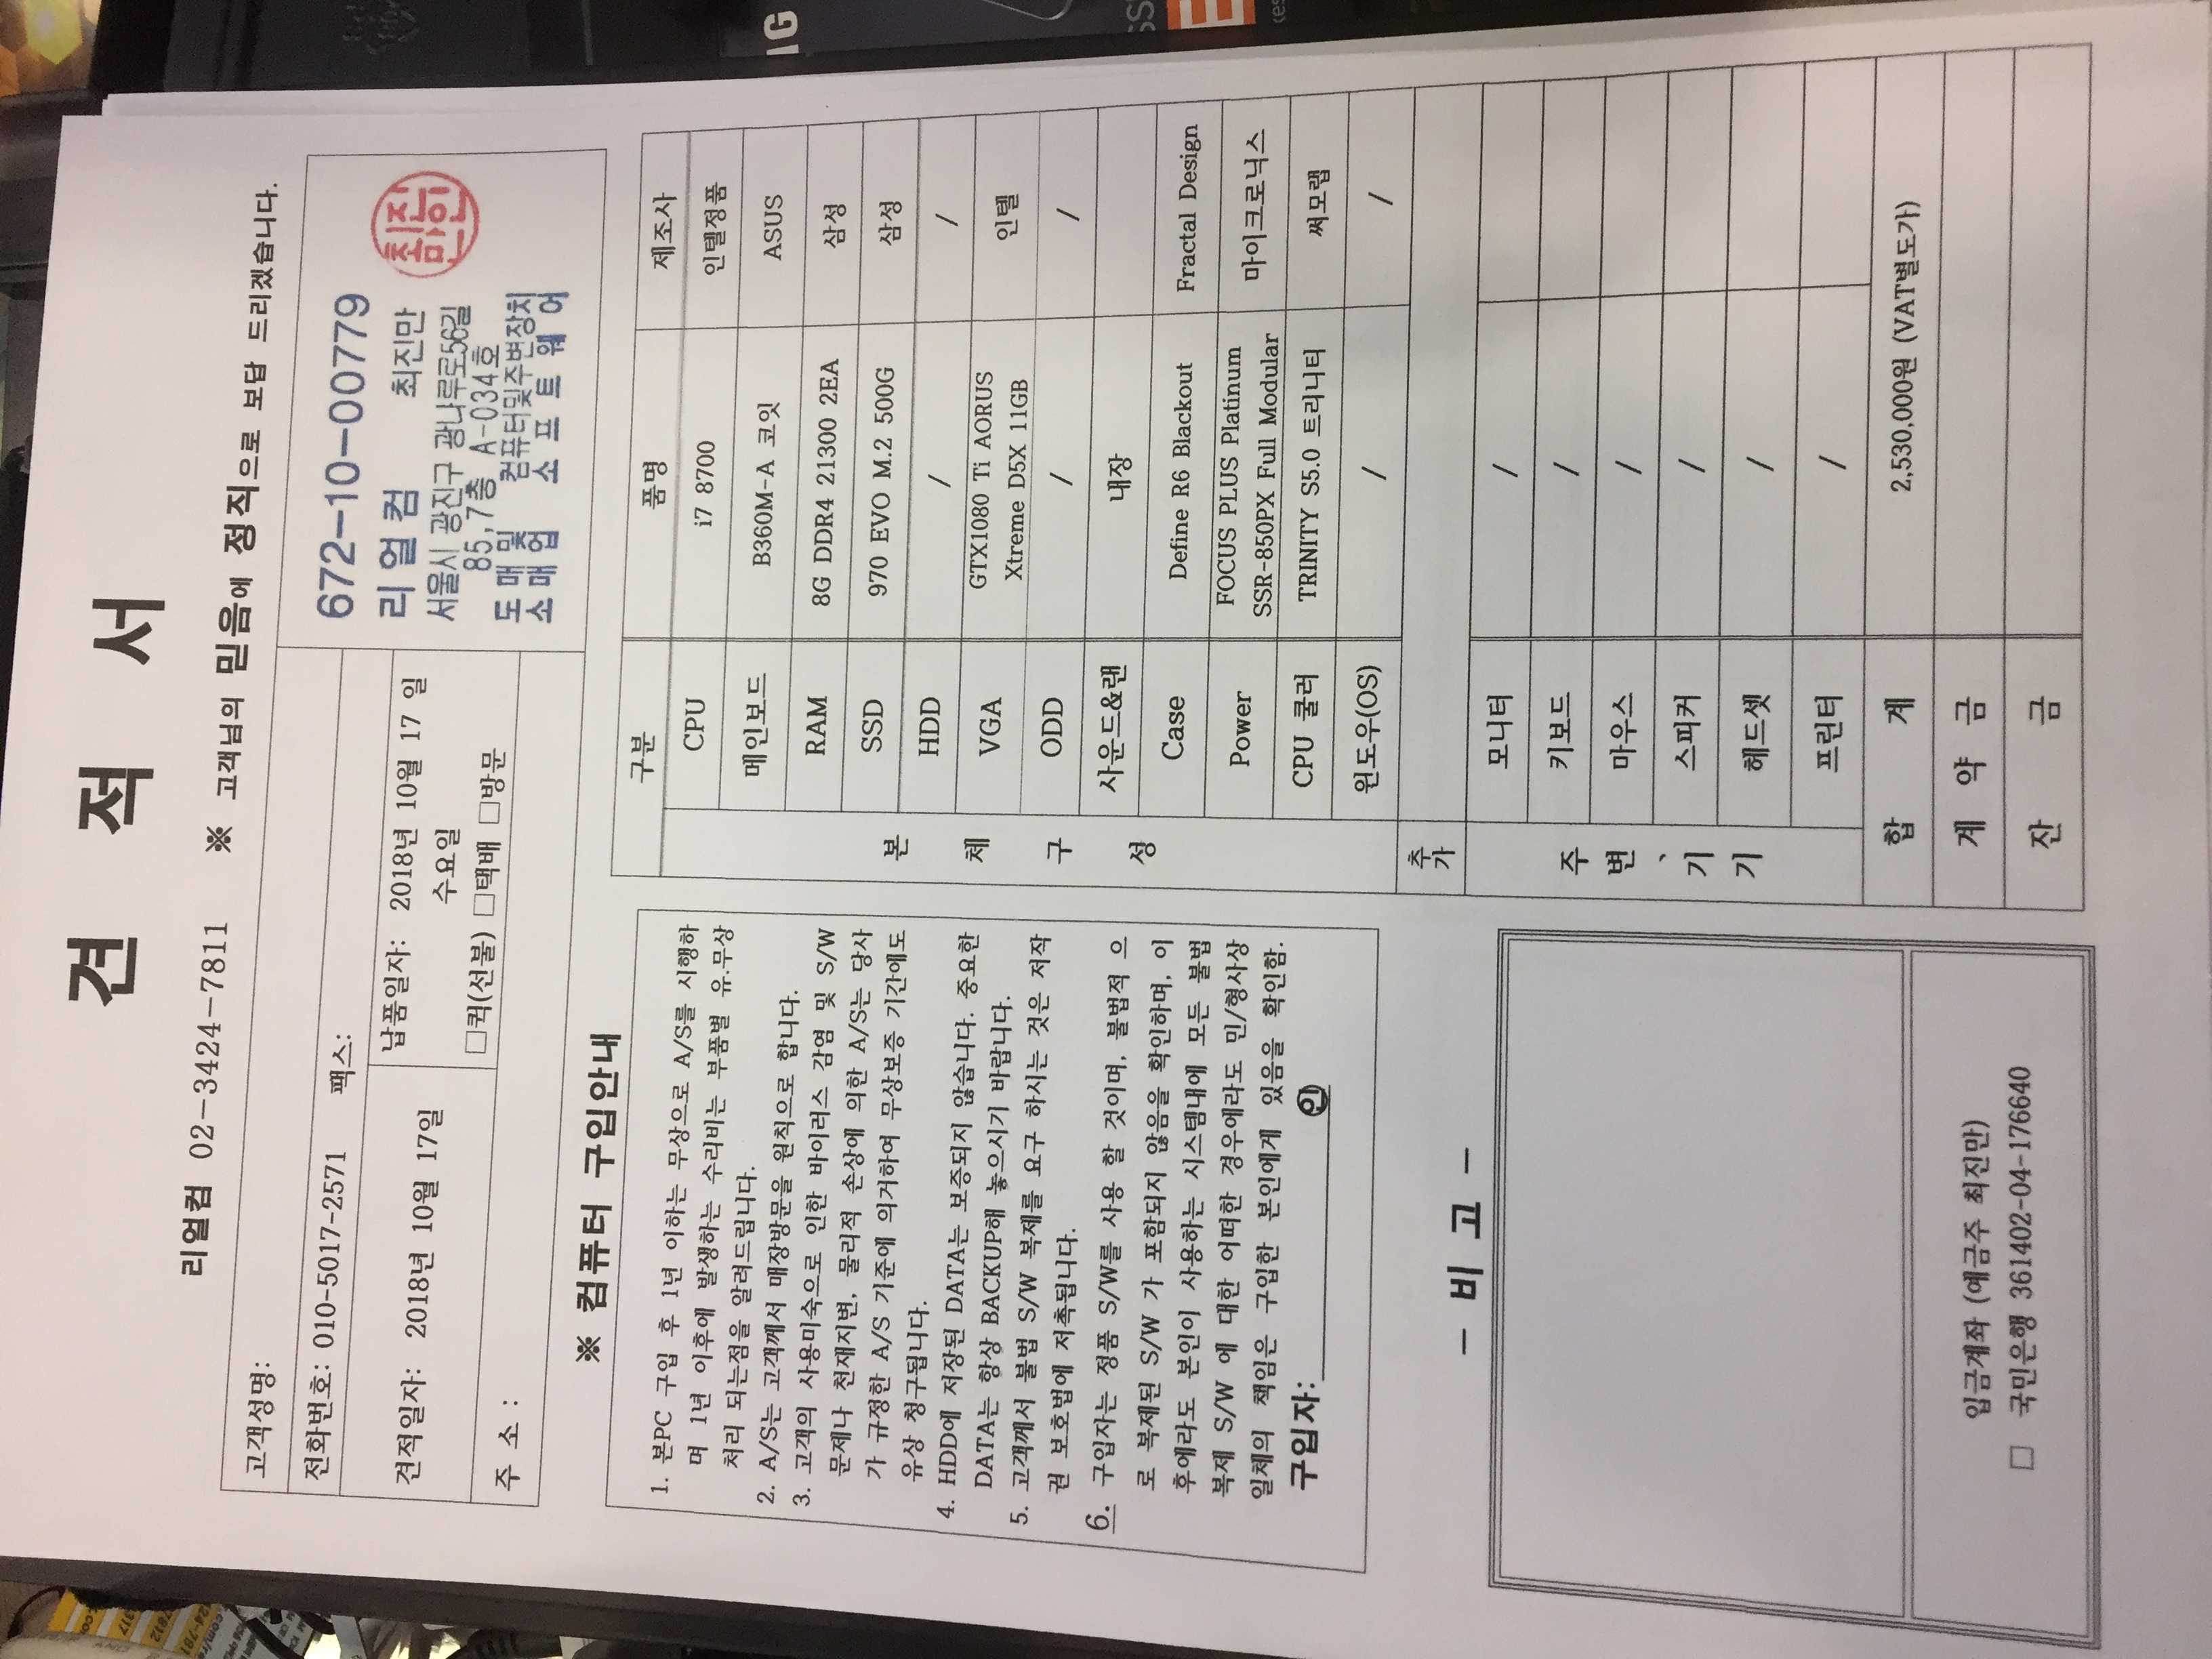 견 적 서
리얼컴 02-3424-7811 ※ 고객님의 믿음에 정직으로 보답 드리겠습니다.
고객성명:
전화번호: 010-5017-2571 팩스:
견적일자: 2018년 10월 17일
납품일자: 2018년 10월 17 일
수요일
□퀵(선불) □택배 □방문
주 소 :
672-10-00779
리얼컴 최진만
서울시 광진구 광나루로56길
85,7층 A-034호
도매및 컴퓨터및주변장치
소매업 소프트웨어
※ 컴퓨터 구입안내
1. 본PC 구입 후 1년 이하는 무상으로 A/S를 시행하
며 1년 이후에 발생하는 수리비는 부품별 유.무상
처리 되는점을 알려드립니다.
2. A/S는 고객께서 매장방문을 원칙으로 합니다.
3. 고객의 사용미숙으로 인한 바이러스 감염 및 S/W
문제나 천재지변, 물리적 손상에 의한 A/S는 당사
가 규정한 A/S 기준에 의거하여 무상보증 기간에도
유상 청구됩니다.
4. HDD에 저장된 DATA는 보증되지 않습니다. 중요한
DATA는 항상 BACKUP해 놓으시기 바랍니다.
5. 고객께서 불법 S/W 복제를 요구 하시는 것은 저작
권 보호법에 저촉됩니다.
6. 구입자는 정품 S/W를 사용 할 것이며, 불법적 으
로 복제된 S/W 가 포함되지 않음을 확인하며, 이
후에라도 본인이 사용하는 시스템내에 모든 불법
복제 S/W 에 대한 어떠한 경우에라도 민/형사상
일체의 책임은 구입한 본인에게 있음을 확인함.
구입자: 인
- 비 고 -
입금계좌 (예금주 최진만)
□ 국민은행 361402-04-176640
구분 품명 제조사
본 체 구 성
CPU i7 8700 인텔정품
메인보드 B360M-A 코잇 ASUS
RAM 8G DDR4 21300 2EA 삼성
SSD 970 EVO M.2 500G 삼성
HDD / /
VGA GTX1080 Ti AORUS
Xtreme D5X 11GB 인텔
ODD / /
사운드&랜 내장
Case Define R6 Blackout Fractal Design
Power FOCUS PLUS Platinum
SSR-850PX Full Modular 마이크로닉스
CPU 쿨러 TRINITY S5.0 트리니티 써모랩
윈도우(OS) / /
추가
주 변 、 기 기
모니터 /
키보드 /
마우스 /
스피커 /
헤드셋 /
프린터 /
합 계 2,530,000원 (VAT별도가)
계 약 금
잔 금